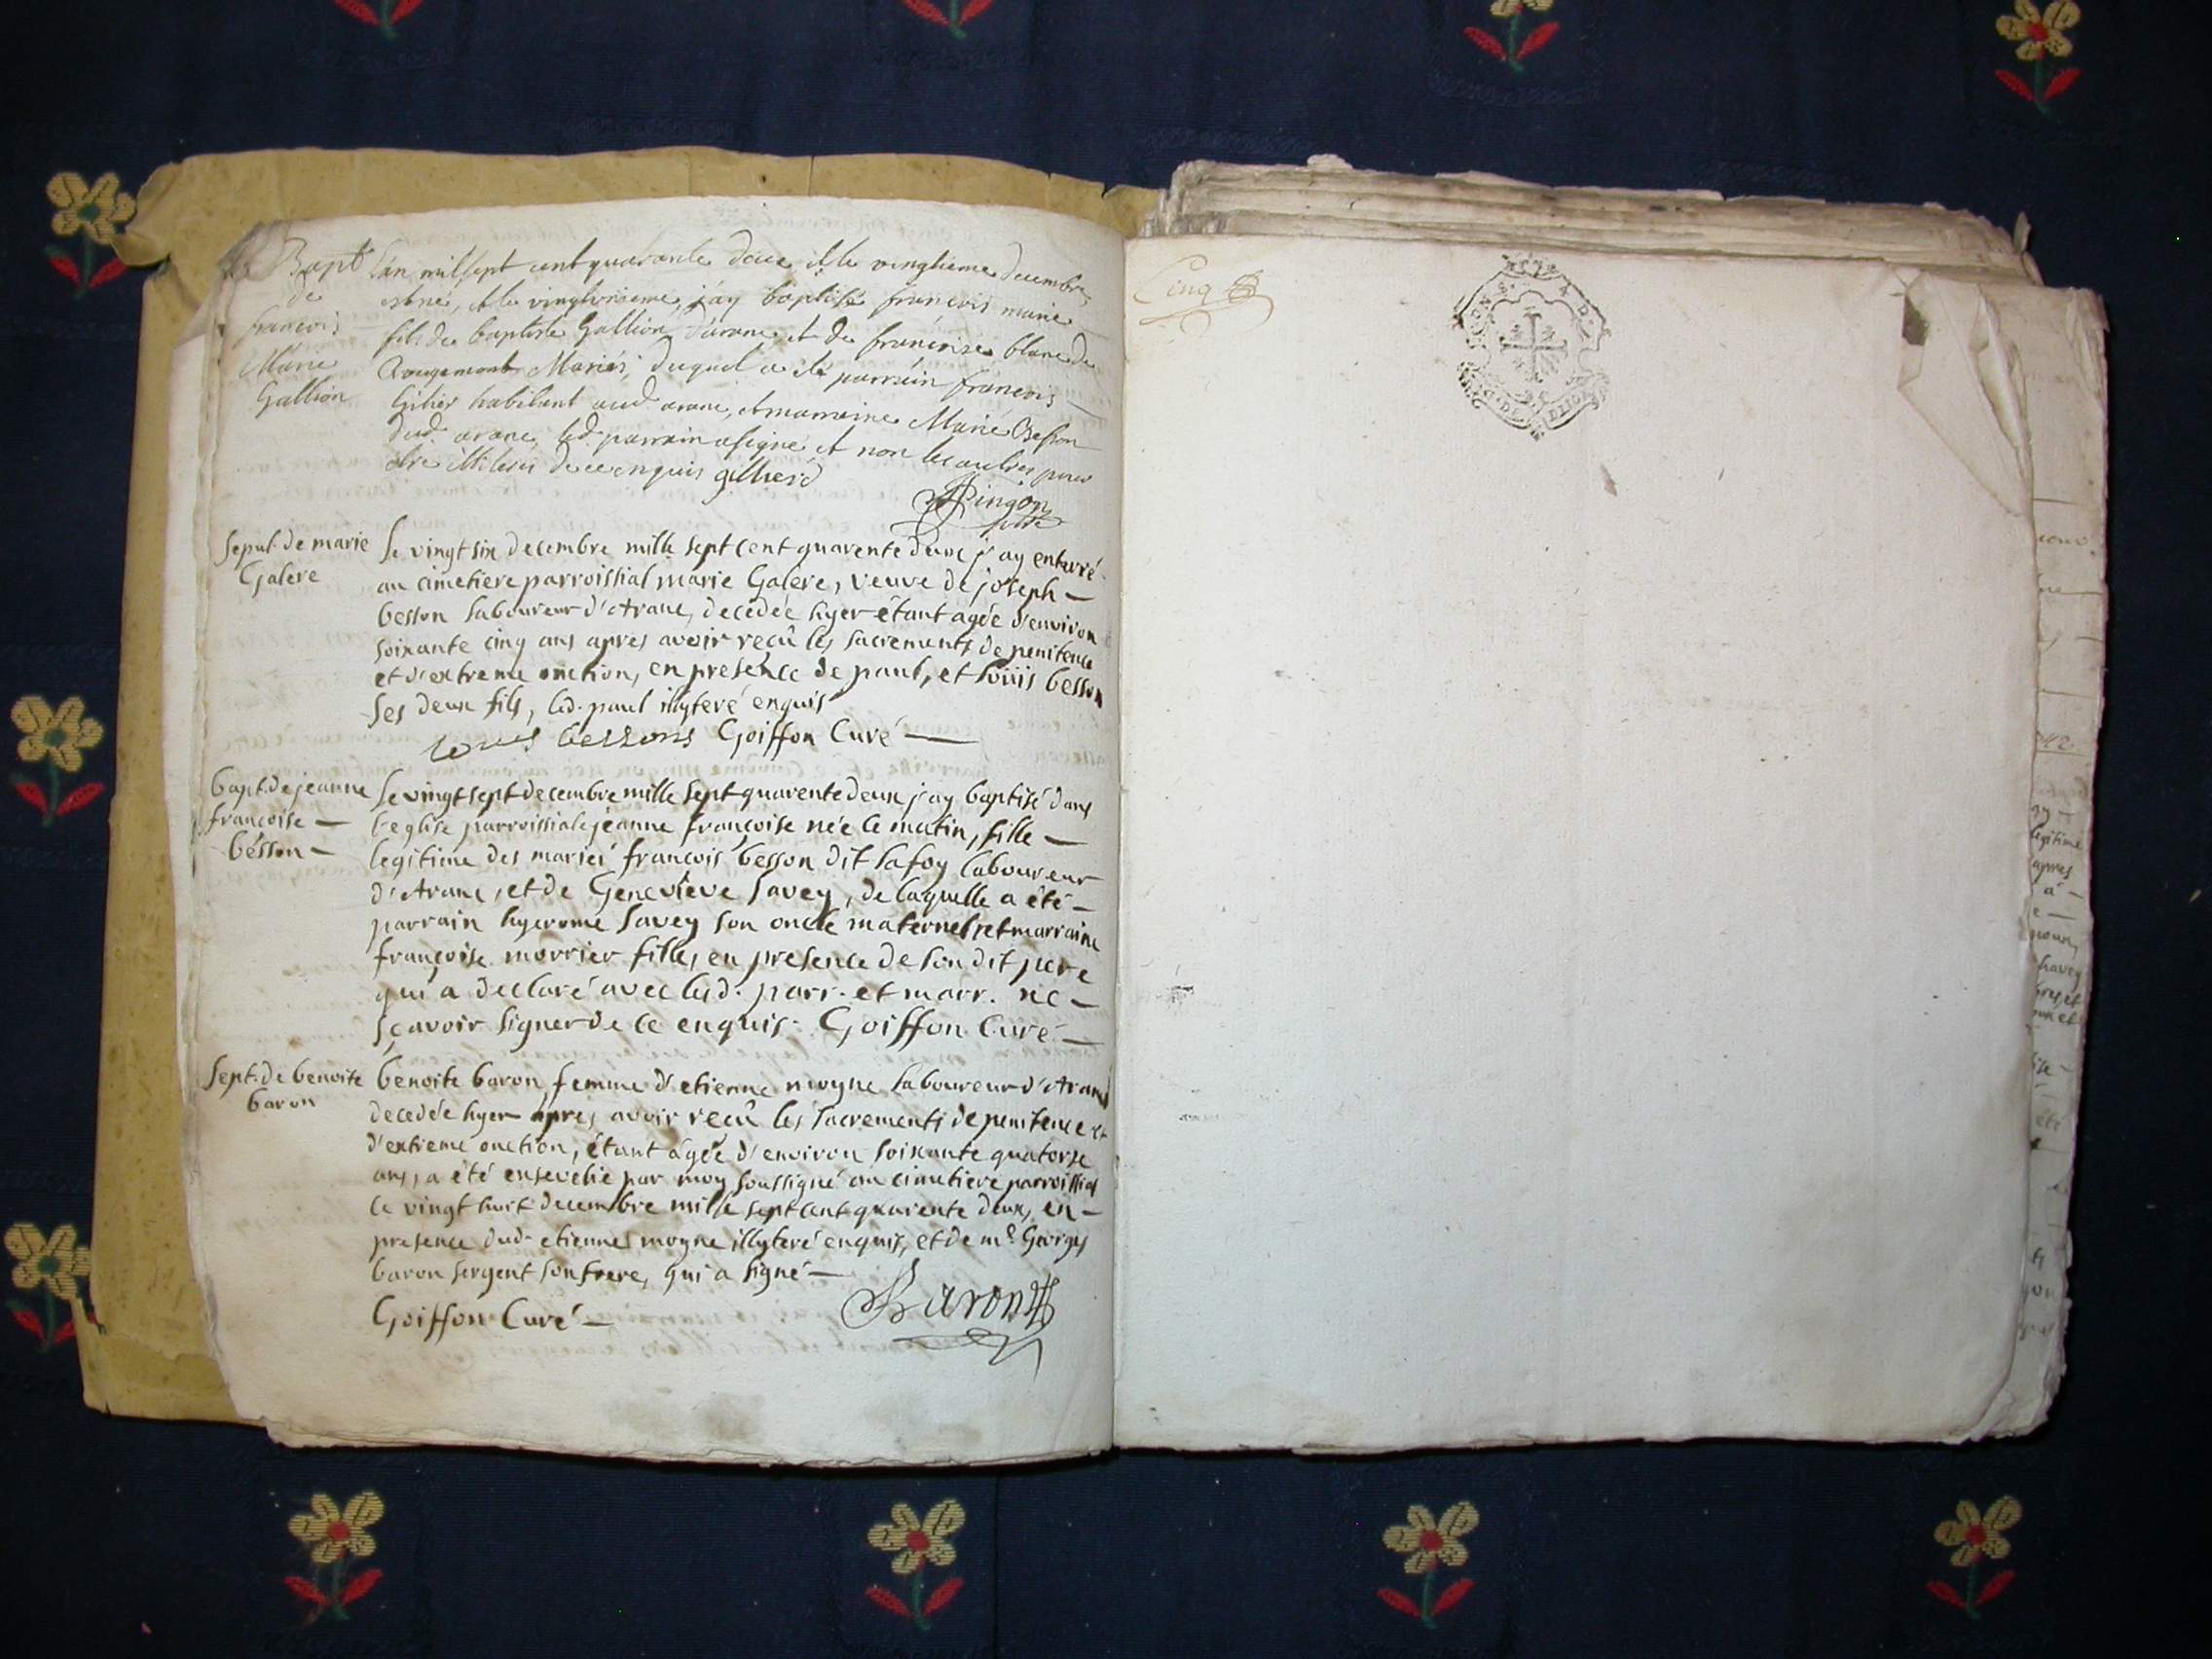 Bapt
de
francois
Marie
Gallion
L'an mil sept cent quarante deux et le vingtieme decembre
est né, et le vingtroisieme, j'ay baptisé françois marie
fils de baptiste Gallion d'arane et de françoise blanc de
Rougemont Mariés, duquel a été parrain francois
habitant aud. arane, et marraine Marie Besson
dud. arane, led. parrain a signé et non les autres pour
etre illiterés de ce enquis gillierd
Pingon
ptre
Sepul. de marie
Galere
Le vingt six decembre mille sept cent quarente deux j'ay enterré
au cimetiere parroissial marie Galere, veuve de joseph —
besson laboureur d'Arane, decedée hyer êtant agée d'environ
soixante cinq ans apres avoir reçû les sacrements de penitence
et d'extreme onction, en presence de paul, et loüis besson
ses deux fils, led. paul illyteré enquis
louis bessons Goiffon Curé —
bapt. de jeanne
françoise —
besson —
Le vingt sept decembre mille sept quarente deux j'ay baptisé dans
l'eglise parroissiale jeanne françoise née le matin, fille —
legitime des mariés françois besson dit lafoy laboureur
d'Arane, et de Genevieve Savey, de laquelle a été —
parrain hyerome Savey son oncle maternel, et marraine
françoise morrier fille, en presence de son dit pere
qui a declaré avec lesd. parr. et marr. ne —
sçavoir signer de ce enquis. Goiffon Curé —
Sept. de benoite
baron
benoite baron, femme d'etienne moyne laboureur d'Arane
decedée hyer apres avoir reçû les sacrements de penitence et
d'extreme onction, étant âgée d'environ soixante quatorse
ans, a été ensevelie par moy soussigné au cimetiere parroissial
le vingt huit decembre mille sept cent quarente deux, en —
presence dud. etienne moyne illyteré enquis, et de mᵉ Georges
baron sergent son frere, qui a signé —
Goiffon Curé —
Baron
Cinq